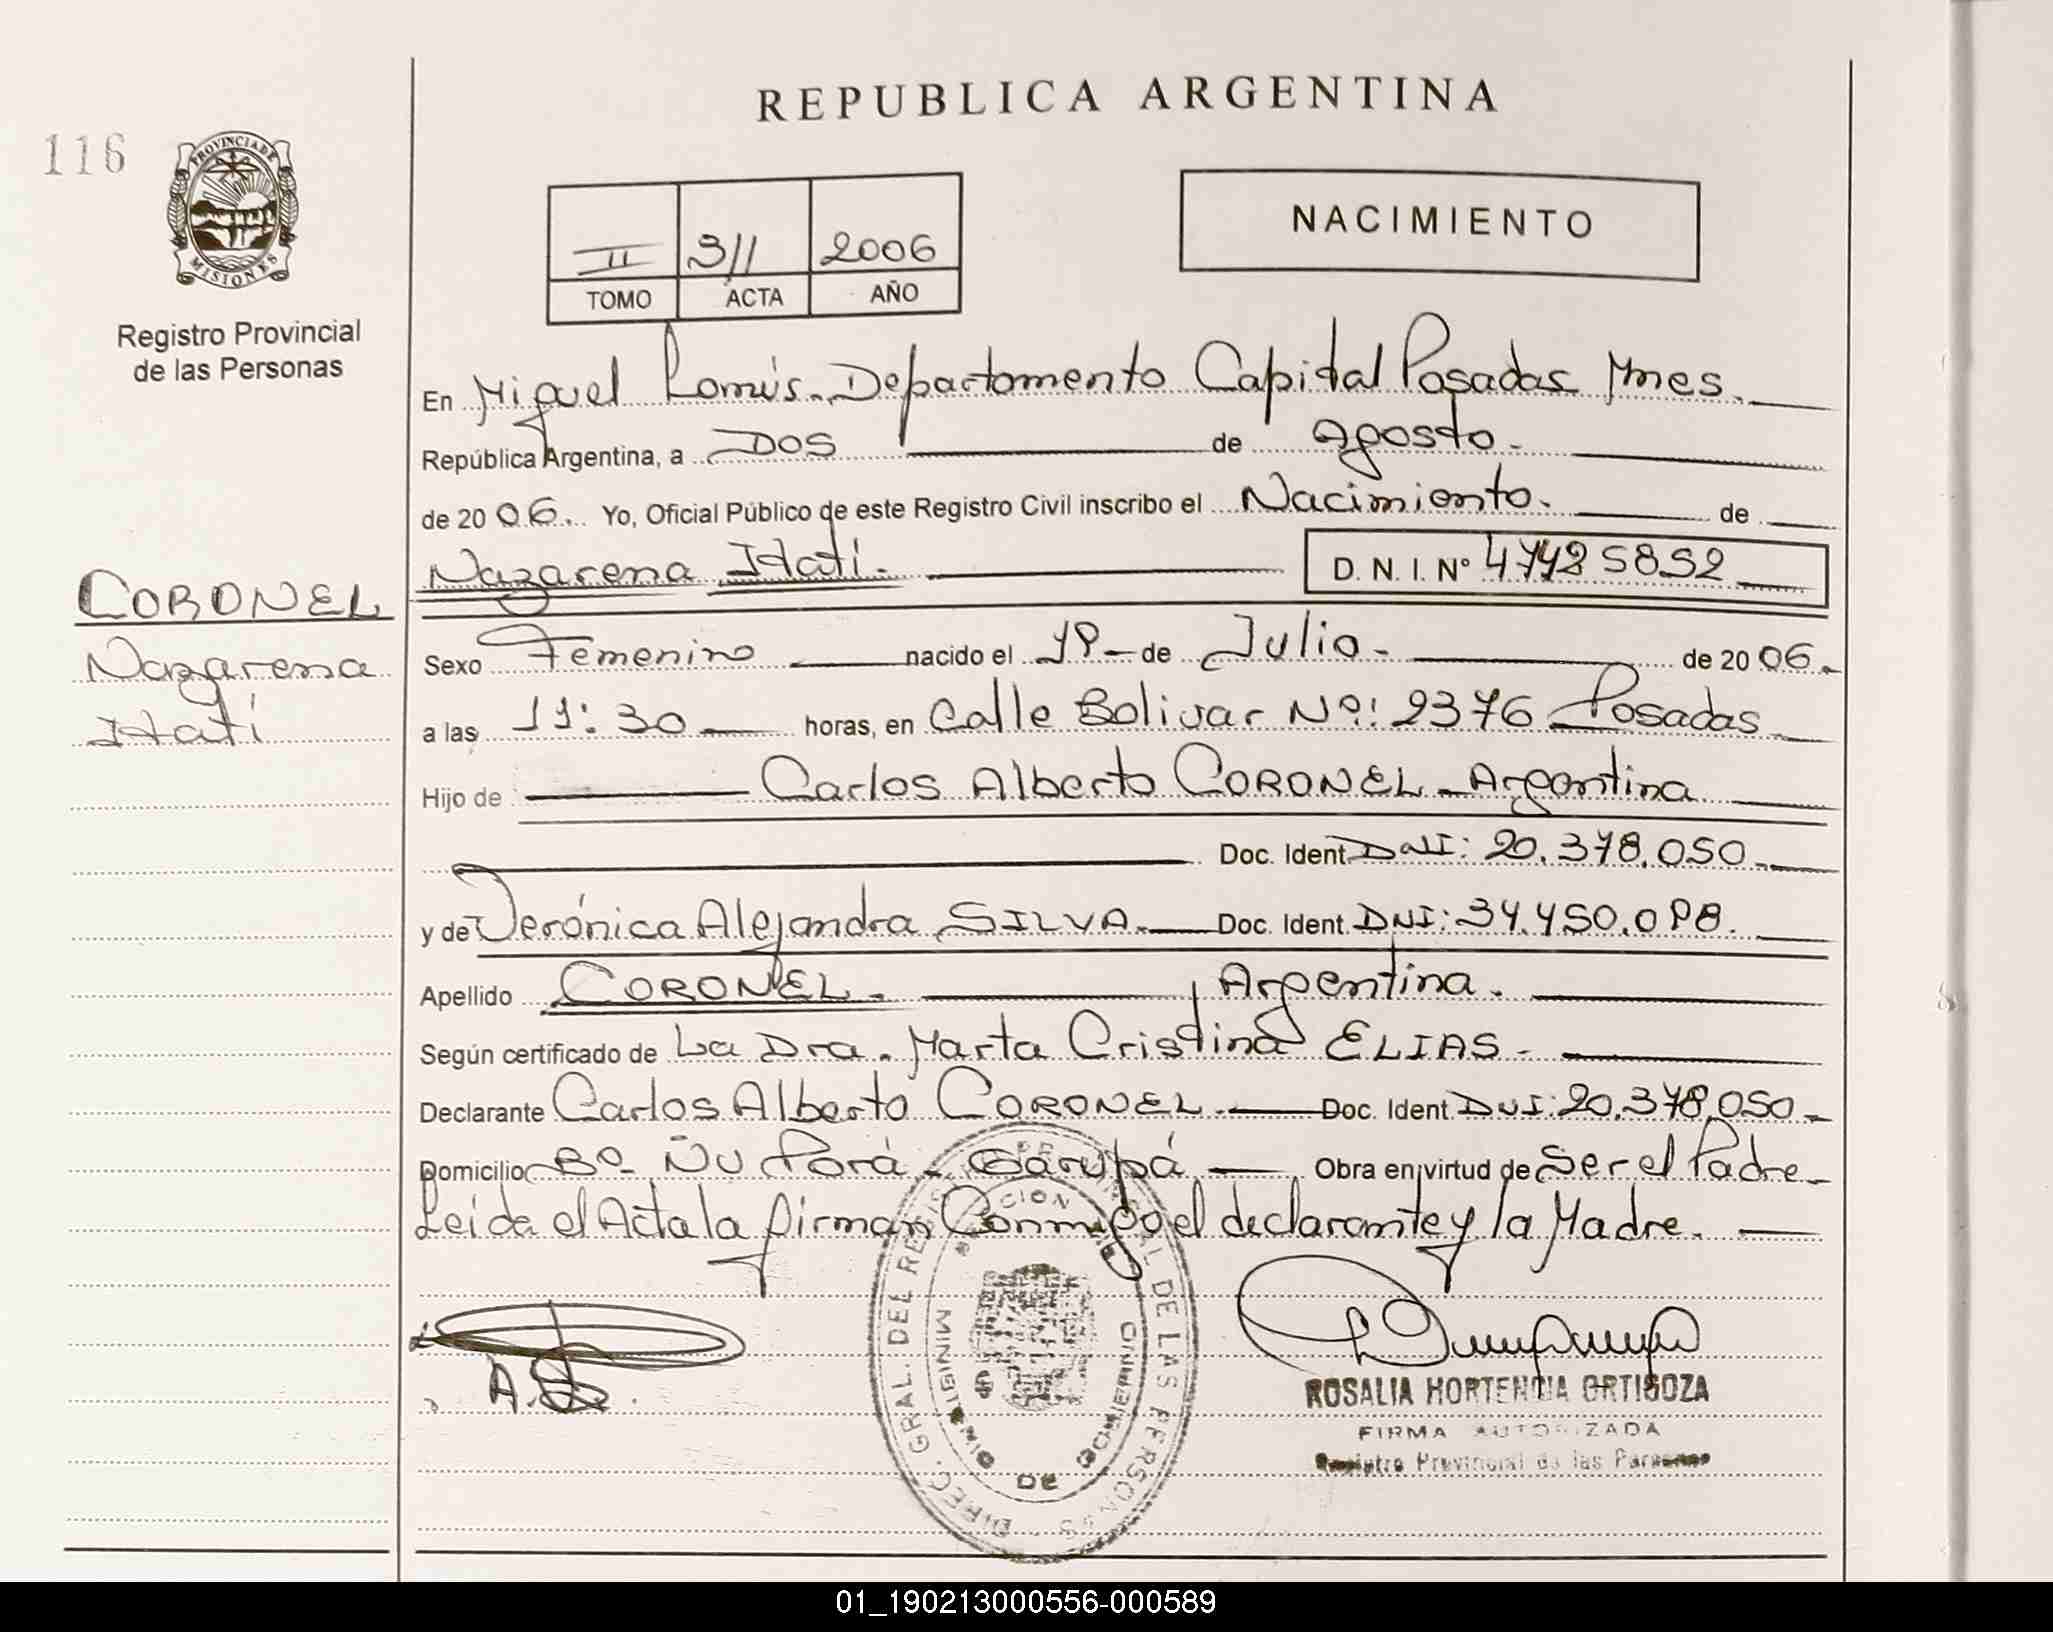 REPUBLICA ARGENTINA
116
PROVINCIA DE MISIONES
NACIMIENTO
II 311 2006
TOMO ACTA AÑO
Registro Provincial
de las Personas
En Miguel Lanús. Departamento Capital Posadas Mnes.
República Argentina, a Dos de Agosto.
de 2006. Yo, Oficial Público de este Registro Civil inscribo el Nacimiento. de
Nazarena Itatí. D. N. I. Nº
CORONEL
Nazarena
Itatí
Sexo Femenino nacido el de Julio. de 2006.
a las 11:30 horas, en Calle Bolivar Nº: 2376 Posadas
Hijo de Carlos Alberto CORONEL Argentina
Doc. Ident. DNI: 20.378.050
y de Verónica Alejandra SILVA. Doc. Ident. DNI: 34.450.098.
Apellido CORONEL. Argentina.
Según certificado de La Dra. Marta Cristina ELIAS.
Declarante Carlos Alberto CORONEL. Doc. Ident. DNI: 20.378.050
Domicilio Bº Ñu Porá - Garupá Obra en virtud de Ser el Padre
Leida el Acta la firman Conmigo el declarante y la Madre.
DIREC. GRAL. DEL REGISTRO PROVINCIAL DE LAS PERSONAS
MINISTERIO DE GOBIERNO
ROSALIA HORTENCIA ORTIGOZA
FIRMA AUTORIZADA
Registro Provincial de las Personas
01_190213000556-000589